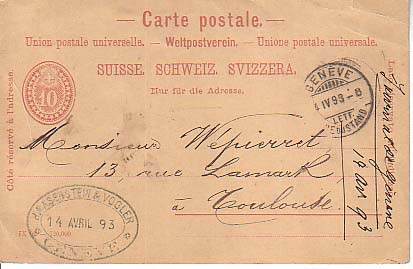 Carte postale.
Union postale universelle. — Weltpostverein. — Unione postale universale.
SUISSE. SCHWEIZ. SVIZZERA.
Nur für die Adresse.
Côté réservé à l'adresse.
10
GENÈVE
IV 93 - 8
LETT.
Monsieur Wepierret
13, rue Lamark
à Toulouse
HAASENSTEIN & VOGLER
14 AVRIL 93
GENÈVE
14 avr 93